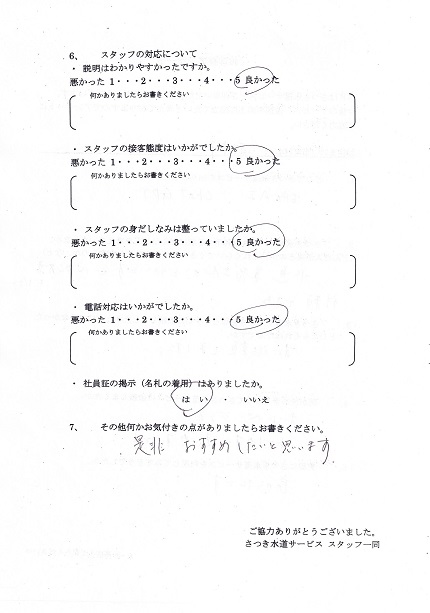 6、 スタッフの対応について
・ 説明はわかりやすかったですか。
悪かった 1・・・2・・・3・・・4・・・5 良かった
何かありましたらお書きください
・ スタッフの接客態度はいかがでしたか。
悪かった 1・・・2・・・3・・・4・・・5 良かった
何かありましたらお書きください
・ スタッフの身だしなみは整っていましたか。
悪かった 1・・・2・・・3・・・4・・・5 良かった
何かありましたらお書きください
・ 電話対応はいかがでしたか。
悪かった 1・・・2・・・3・・・4・・・5 良かった
何かありましたらお書きください
・ 社員証の掲示（名札の着用）はありましたか。
は い ・ いいえ
7、 その他何かお気付きの点がありましたらお書きください。
是非 おすすめしたいと思います
ご協力ありがとうございました。
さつき水道サービス スタッフ一同